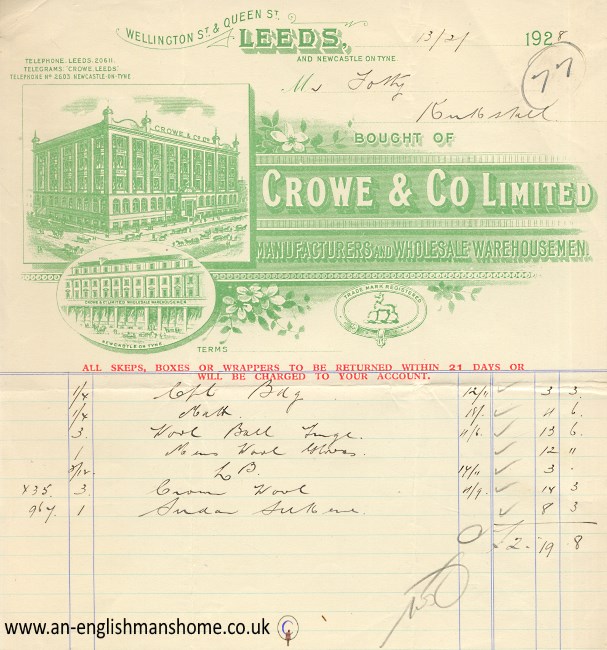 WELLINGTON ST. & QUEEN ST.
LEEDS,
AND NEWCASTLE ON TYNE
13/2/ 1928
TELEPHONE. LEEDS. 20611.
TELEGRAMS: "CROWE. LEEDS."
TELEPHONE No 2603. NEWCASTLE-ON-TYNE
77
Mr
Kirkstall
CROWE & CO LD
BOUGHT OF
CROWE & CO LIMITED
MANUFACTURERS AND WHOLESALE WAREHOUSEMEN.
CROWE & CO LIMITED WHOLESALE WAREHOUSEMEN
NEWCASTLE ON TYNE
TRADE MARK REGISTERED
TERMS
ALL SKEPS, BOXES OR WRAPPERS TO BE RETURNED WITHIN 21 DAYS OR
WILL BE CHARGED TO YOUR ACCOUNT.
1/4 Bdg 12/11 3 3
1/4 18/- 4 6
3 Wool 4/6 13 6
1 Mens Wool Gloves 12 "
3/12 L.B. 14/11 3 .
X35 3 Crown Wool 4/9 14 3
967 1 8 3
2 - 19 8
www.an-englishmanshome.co.uk
C